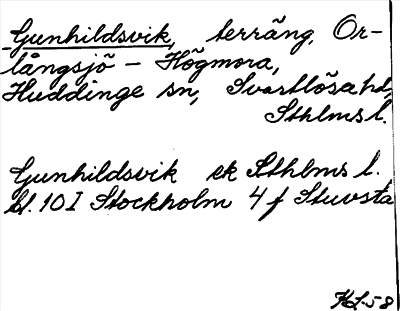 Gunhildsvik, terräng, Or-
långsjö - Högmora,
Huddinge sn, Svartlösa hd,
Sthlms l.
Gunhildsvik ek Sthlms l.
bl. 10 I Stockholm 4 f Stuvsta
KL-58